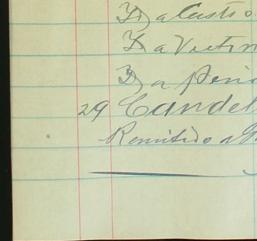 D) a Castro
D a Victor
D) a Peni
29 Candel
Remitido a